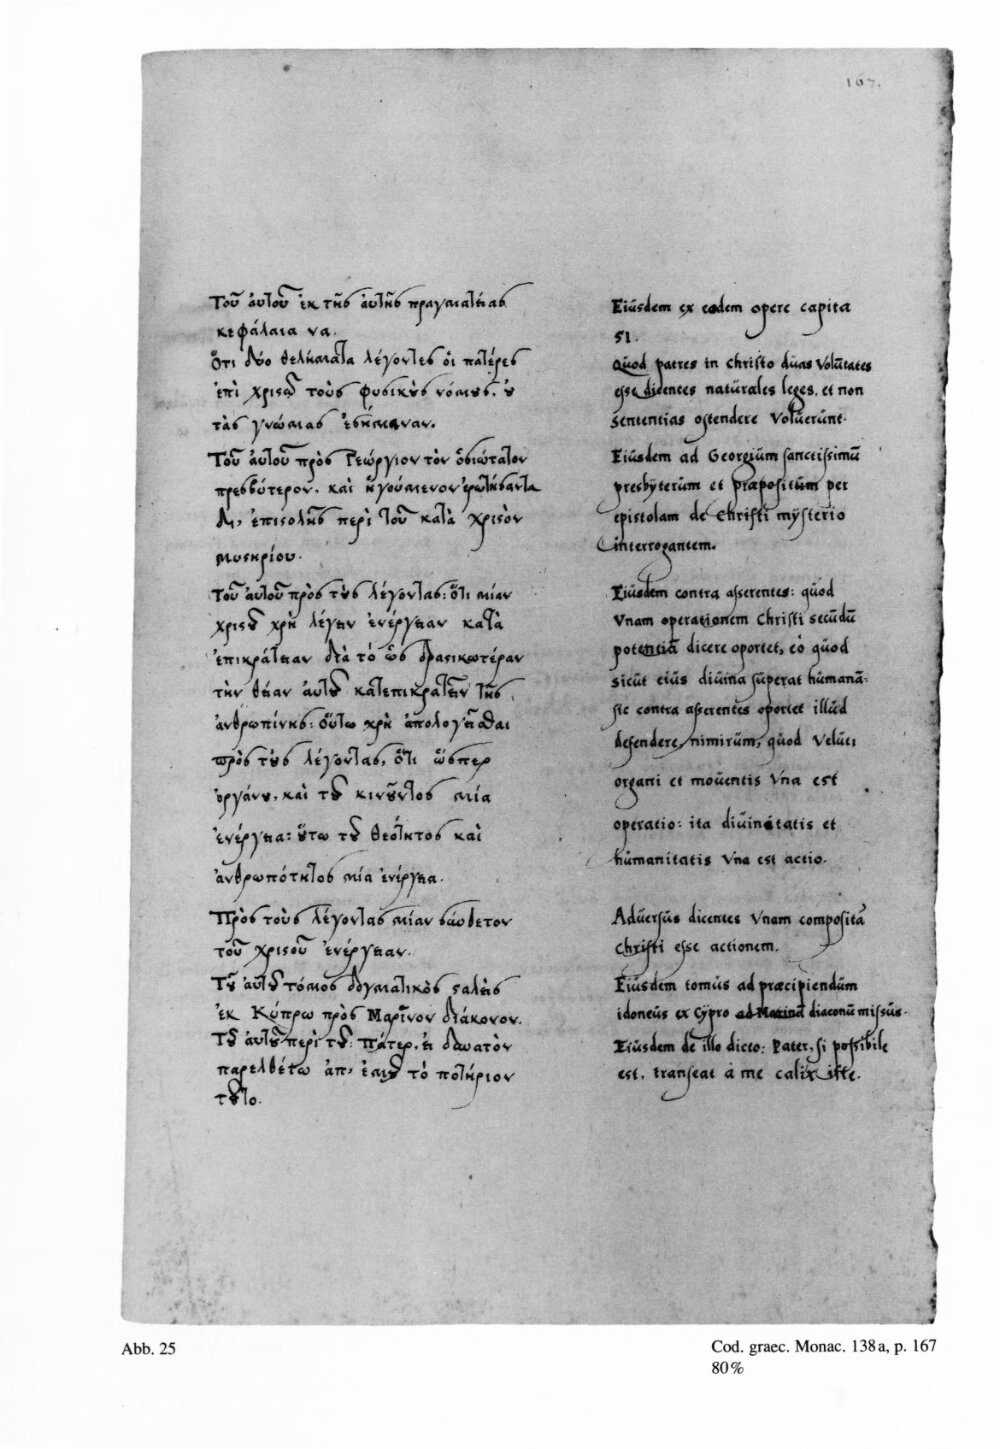 167.
Τοῦ αὐτοῦ ἐκ τῆς αὐτῆς πραγματείας
κεφάλαια να.
Ὅτι δύο θελήματα λέγοντες οἱ πατέρες
ἐπὶ χριστῶ τοὺς φυσικοὺς νόμους, οὐ
τὰς γνώμας ἐσήμαναν.
Τοῦ αὐτοῦ πρὸς Γεώργιον τὸν ὁσιώτατον
πρεσβύτερον, καὶ ἡγούμενον ἐρωτήσαντα
δι' ἐπιστολῆς περὶ τοῦ κατὰ χριστὸν
μυστηρίου.
Τοῦ αὐτοῦ πρὸς τοὺς λέγοντας: ὅτι μίαν
χριστοῦ χρὴ λέγειν ἐνέργειαν κατὰ
ἐπικράτειαν διὰ τὸ ὡς δραστικωτέραν
τὴν θείαν αὐτοῦ κατεπικρατεῖν τῆς
ἀνθρωπίνης: οὕτω χρὴ ἀπολογεῖσθαι
πρὸς τοὺς λέγοντας, ὅτι ὥσπερ
ὀργάνου, καὶ τοῦ κινοῦντος μία
ἐνέργεια: οὕτω τοῦ θεότητος καὶ
ἀνθρωπότητος μία ἐνέργεια.
Πρὸς τοὺς λέγοντας μίαν σύνθετον
τοῦ χριστοῦ ἐνέργειαν.
Τοῦ αὐτοῦ τόμος δογματικὸς σταλεὶς
ἐκ Κύπρω πρὸς Μαρῖνον διάκονον.
Τοῦ αὐτοῦ περὶ τοῦ: Πάτερ, εἰ δυνατὸν
παρελθέτω ἀπ' ἐμοῦ τὸ ποτήριον
τοῦτο.
Eiusdem ex eodem opere capita
51.
Quod patres in Christo duas voluntates
esse dicentes naturales leges, et non
sententias ostendere voluerunt.
Eiusdem ad Georgium sanctissimū
presbyterum et præpositum per
epistolam de Christi mysterio
interrogantem.
Eiusdem contra asserentes: quod
Vnam operationem Christi secūdū
potentiā dicere oportet, eò quod
sicut eius diuina superat humanā:
sic contra asserentes oportet illud
defendere, nimirum, quod veluti
organi et mouentis vna est
operatio: ita diuinitatis et
humanitatis vna est actio.
Aduersus dicentes vnam compositā
Christi esse actionem.
Eiusdem tomus ad præcipiendum
idoneus ex Cypro ad Marinū diaconū missus.
Eiusdem de illo dicto: Pater, si possibile
est, transeat à me calix iste.
Abb. 25
Cod. graec. Monac. 138a, p. 167
80%